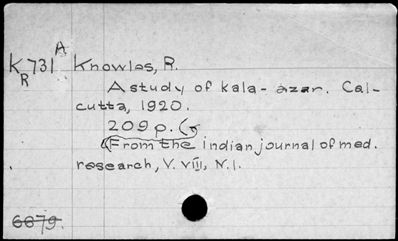 A
K731 Knowles, R.
R
A study of kala-azar. Cal-
cutta, 1920.
209 p. (
(From the indian journal of med.
research, V. VIII, N.1.
6879.